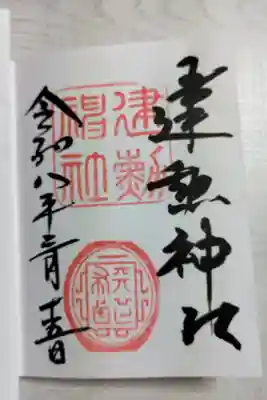 建勲神社
建勲神社
令和八年三月十五日